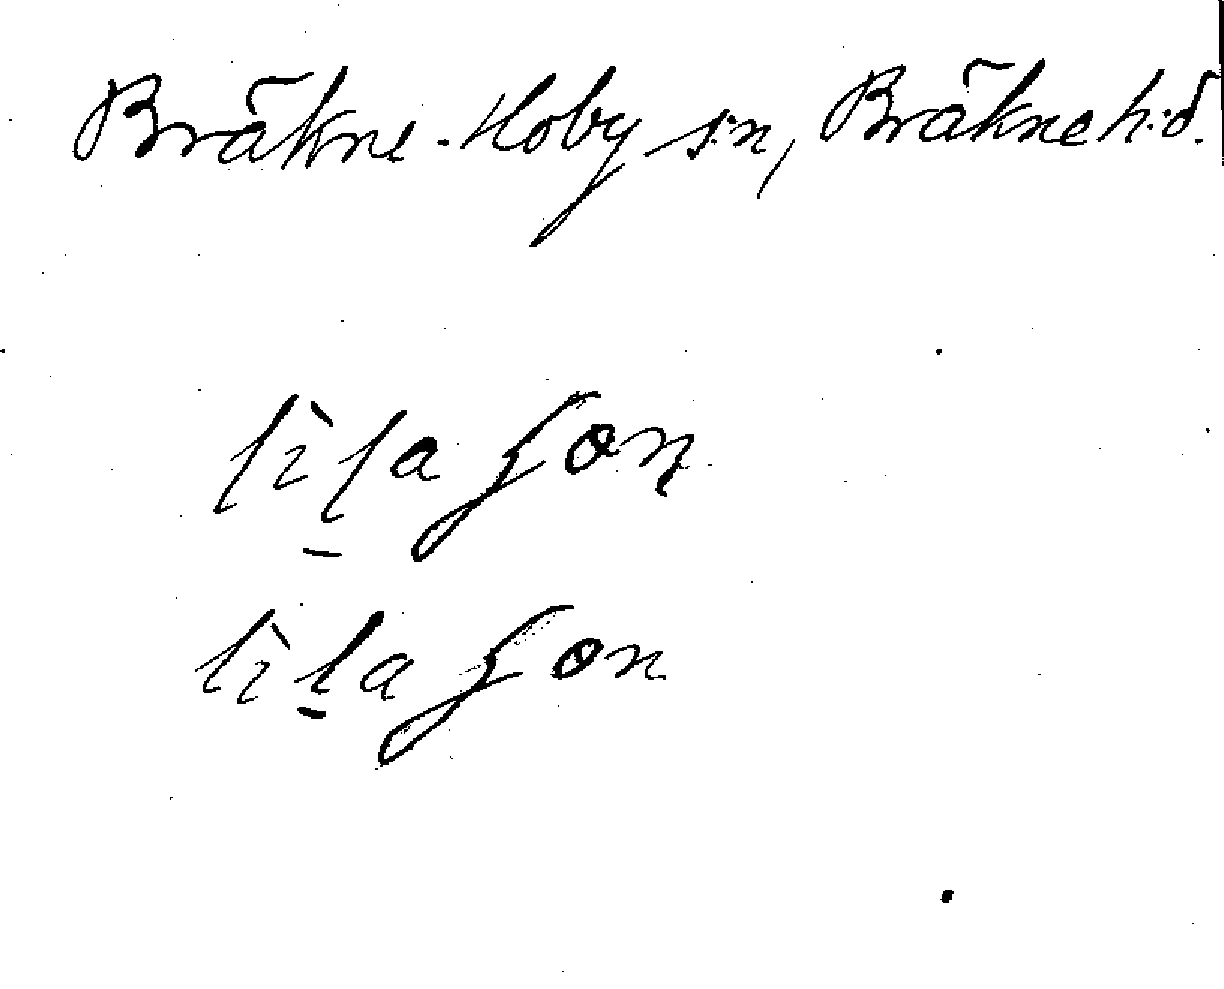 Bräkne-Hoby s:n, Bräkne h:d.
lìla ʃøn
lìla ʃøn